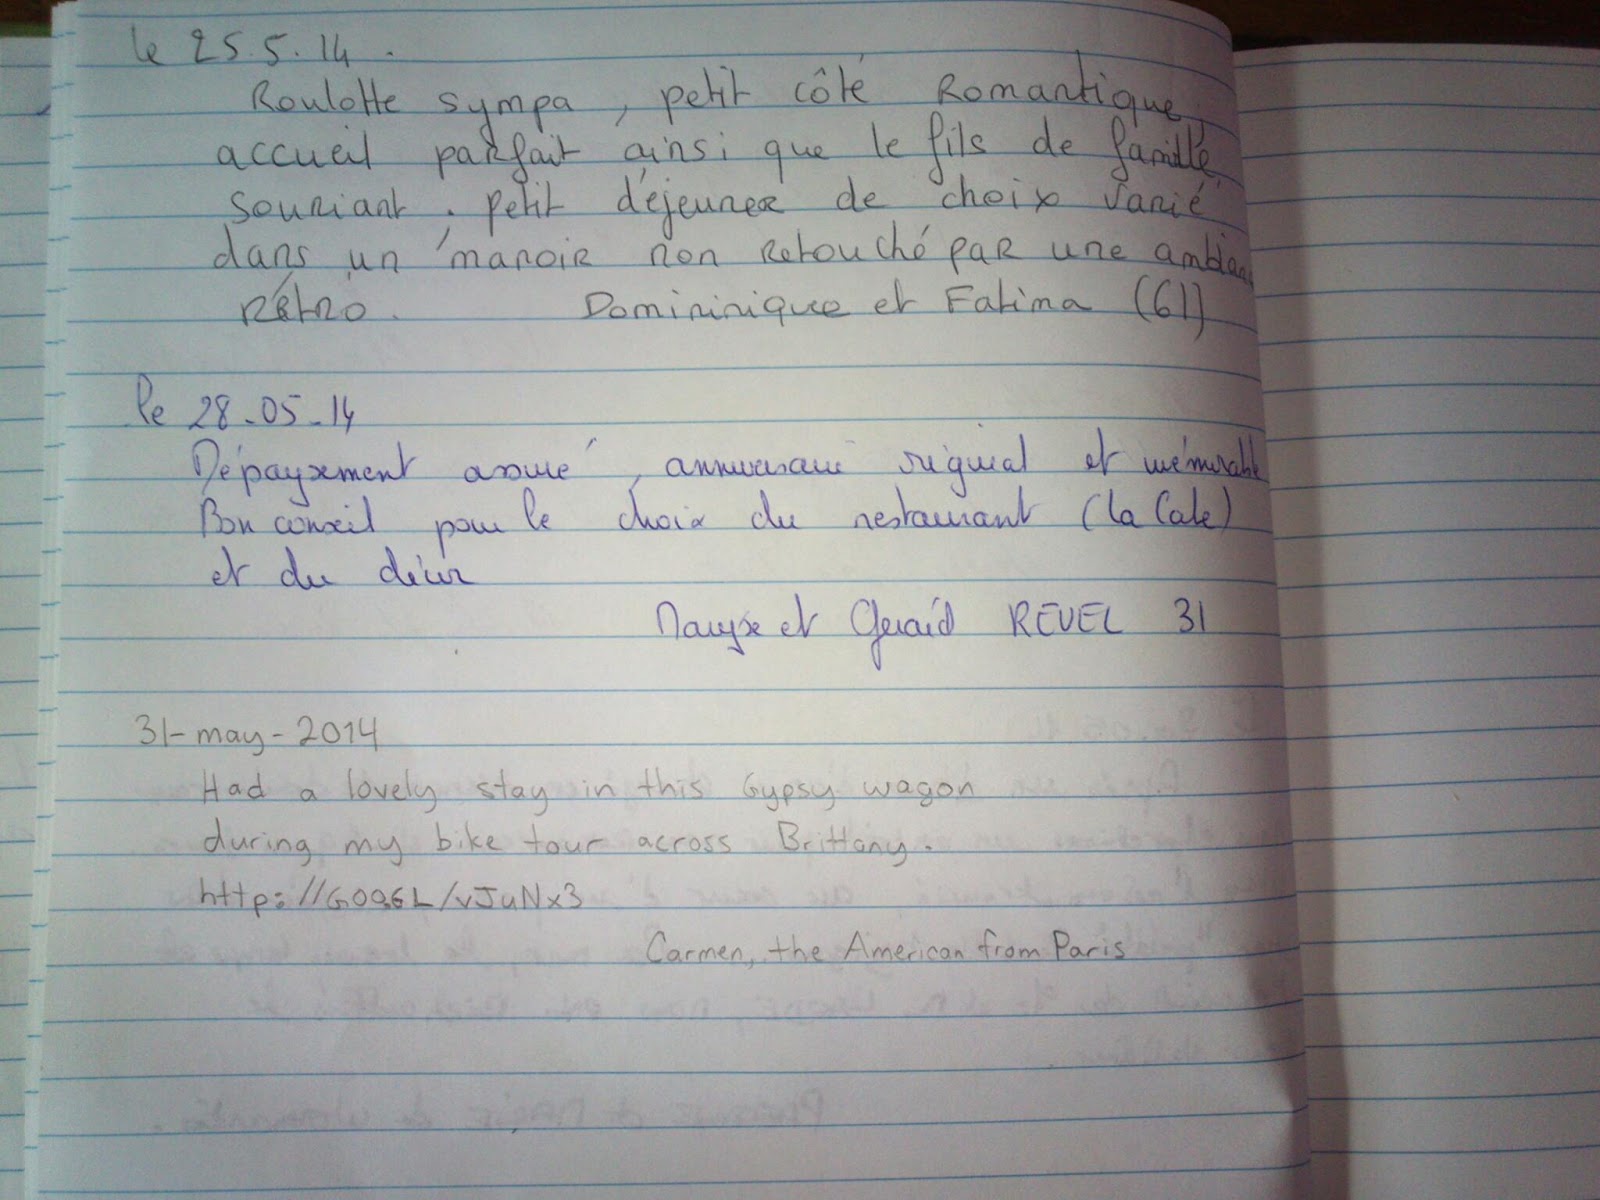 le 25.5.14.
Roulotte sympa, petit côté Romantique
accueil parfait ainsi que le fils de famille
souriant. petit déjeuner de choix varié
dans un manoir non retouché par une
rétro. Domininique et Fatima (61)
le 28-05-14
Dépaysement assuré, anniversaire original et mémorable
Bon conseil pour le choix du restaurant (la Cale)
et du
Maryse et Gérard REVEL 31
31-may-2014
Had a lovely stay in this Gypsy wagon
during my bike tour across Brittany.
http://GOO.GL/vJuNx3
Carmen, the American from Paris